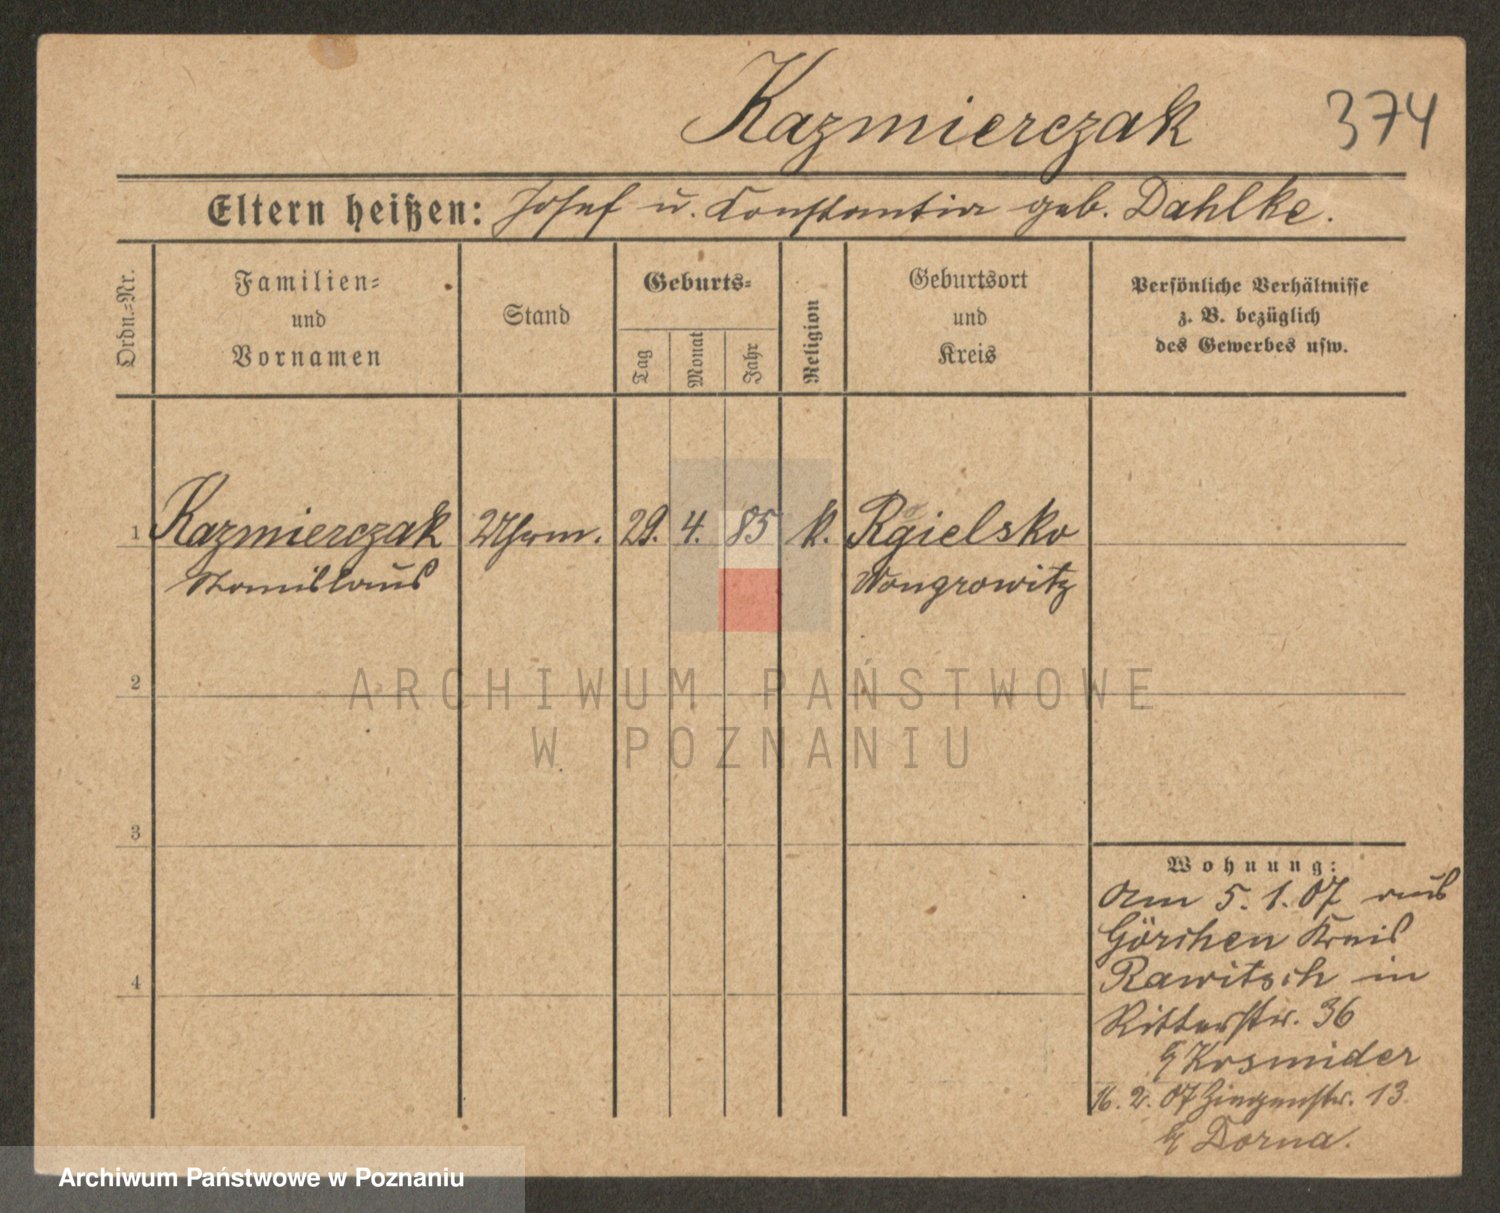 Kazmierczak 374
Eltern heißen: Josef u. Konstantia geb. Dahlke.
Ordn.=Nr.
Familien=
und
Vornamen
Stand
Geburts=
Tag
Monat
Jahr
Religion
Geburtsort
und
Kreis
Persönliche Verhältnisse
z. B. bezüglich
des Gewerbes usw.
1 Kazmierczak Uhrm. 29. 4. 85 k. Rgielsko
Stanislaus Wongrowitz
2
ARCHIWUM PAŃSTWOWE
W POZNANIU
3
Wohnung:
Am 5. 1. 07 aus
Görchen Kreis
Rawitsch in
4
Ritterstr. 36
Kosmider
16. 2. 07 Ziegenstr. 13
Dorna.
Archiwum Państwowe w Poznaniu